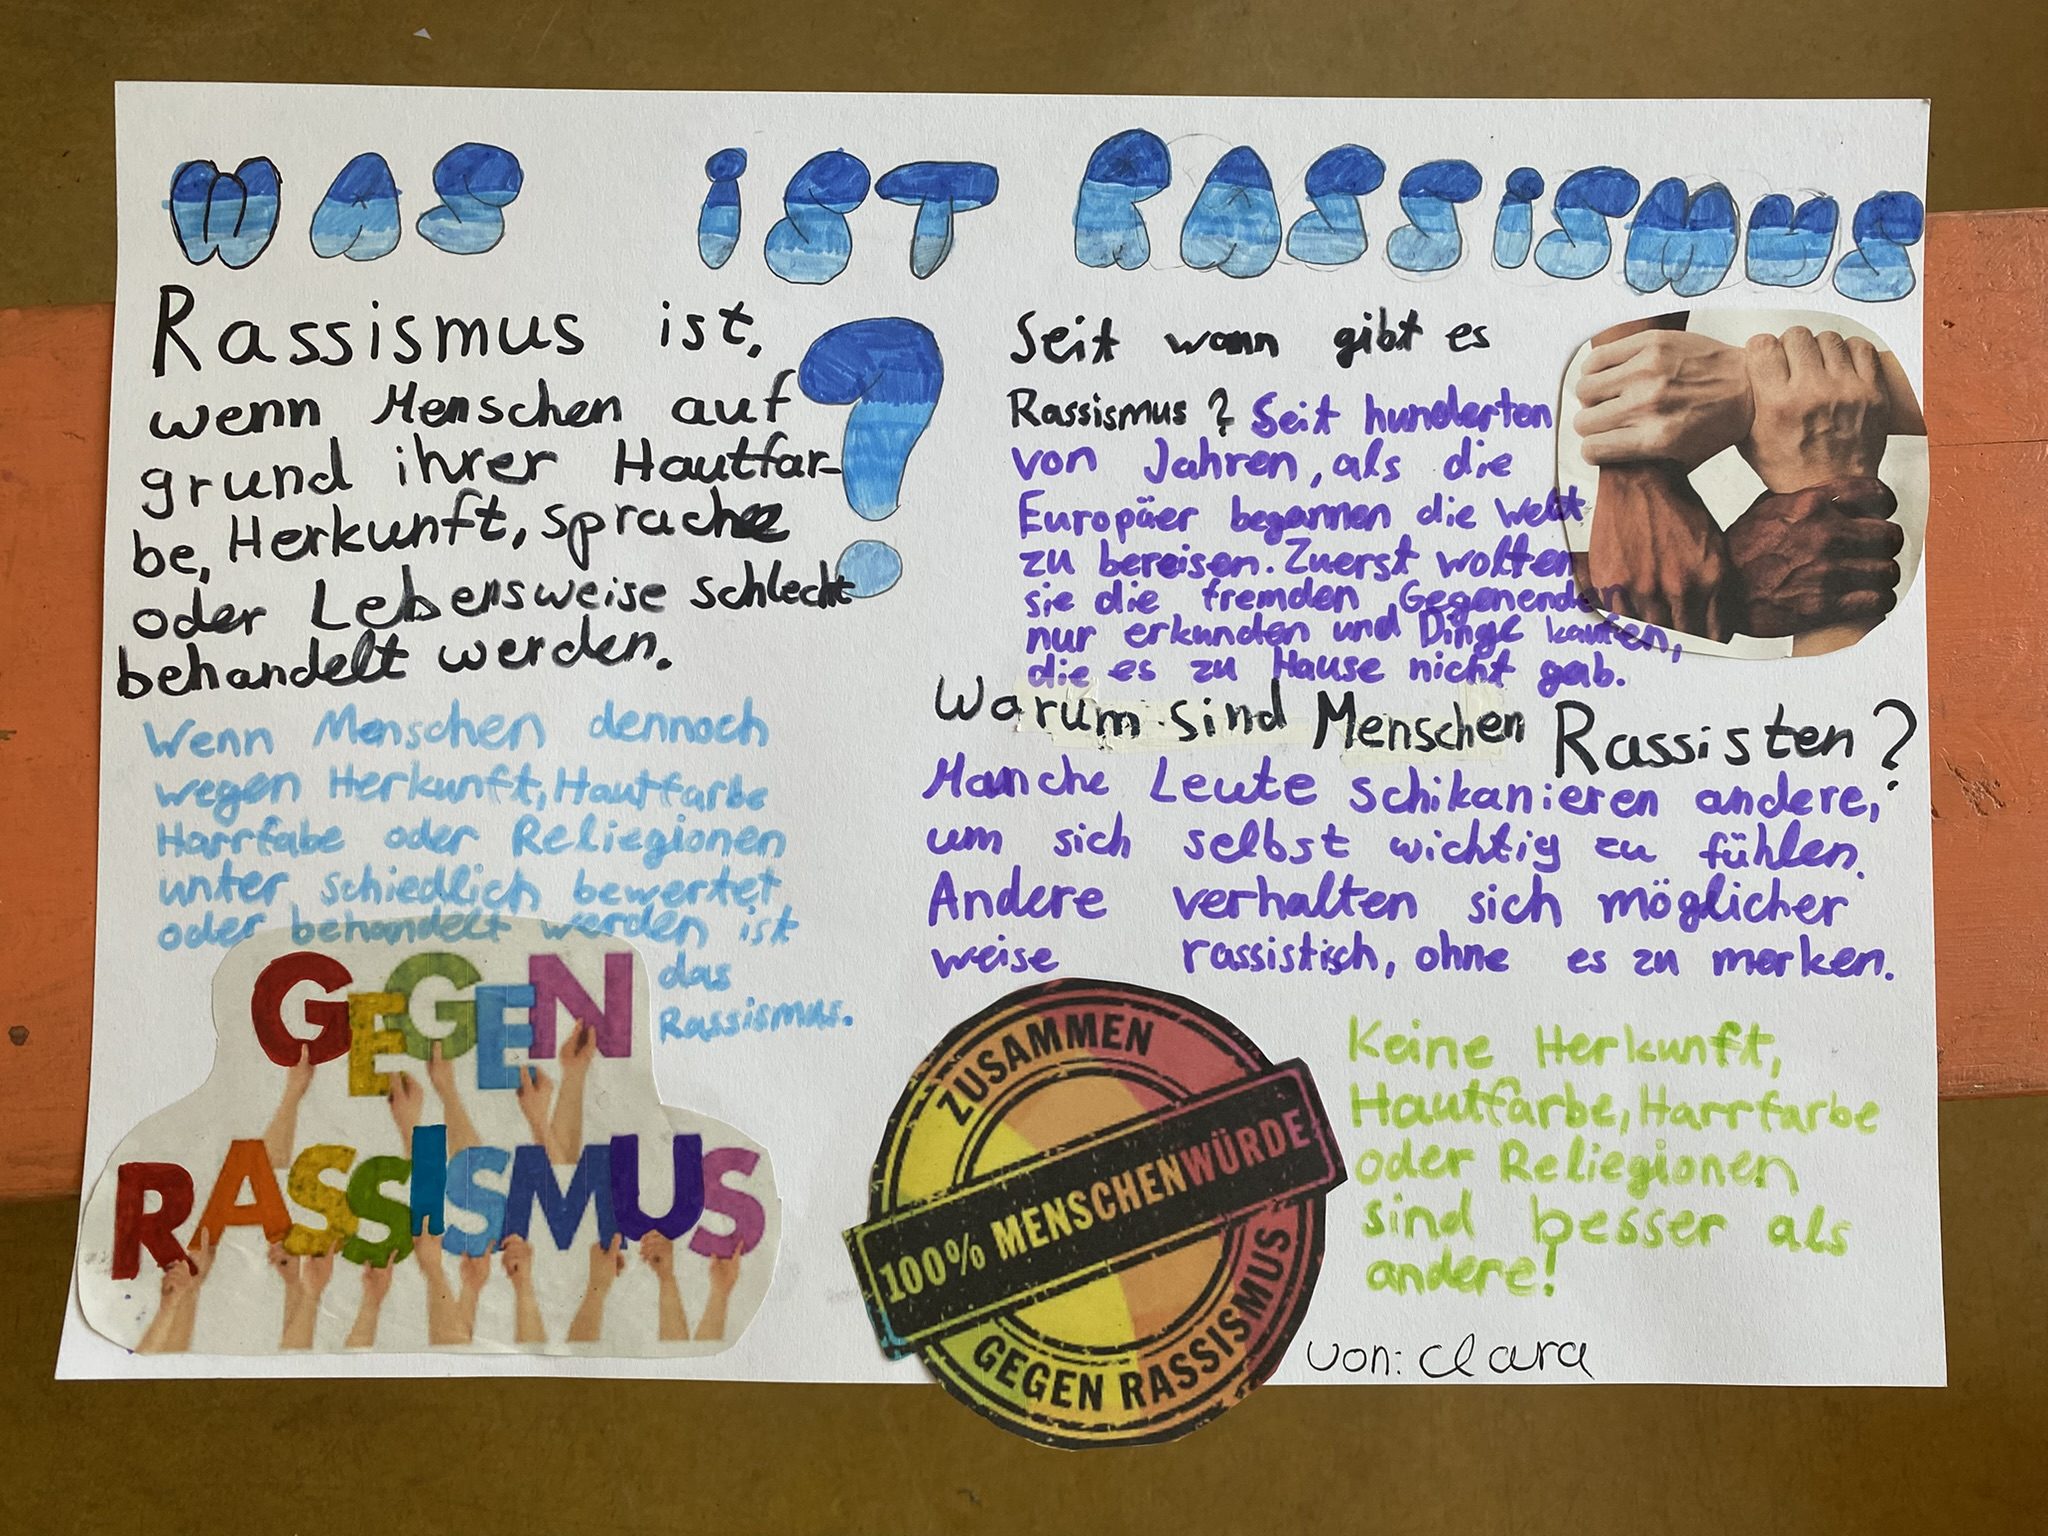 WAS iST RASSiSMUS
?
Rassismus ist,
wenn Menschen auf
grund ihrer Hautfar-
be, Herkunft, sprache
oder Lebensweise schlecht
behandelt werden.
Wenn Menschen dennoch
wegen Herkunft, Hautfarbe
Harrfabe oder Reliegionen
unter schiedlich bewertet
oder behandelt werden ist
das
Rassismus.
GEGEN
RASSISMUS
Seit wann gibt es
Rassismus? Seit hunderten
von Jahren, als die
Europäer begannen die Welt
zu bereisen. Zuerst wollten
sie die fremden Gegenenden
nur erkunden und Dinge kaufen,
die es zu Hause nicht gab.
Warum sind Menschen Rassisten?
Manche Leute schikanieren andere,
um sich selbst wichtig zu fühlen.
Andere verhalten sich möglicher
weise rassistisch, ohne es zu merken.
ZUSAMMEN
100% MENSCHENWÜRDE
GEGEN RASSISMUS
Keine Herkunft,
Hautfarbe, Harrfarbe
oder Reliegionen
sind besser als
andere!
von: clara